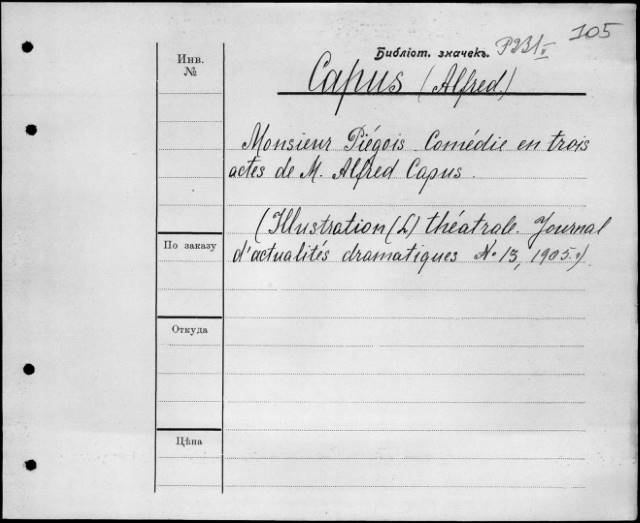 105
Библіот. значекъ.
Инв.
№
Capus (Alfred)
Monsieur Piégois. Comédie en trois
actes de M. Alfred Capus.
(Illustration (L) théatrale. Journal
d'actualités dramatiques № 13, 1905.)
По заказу
Откуда
Цѣна